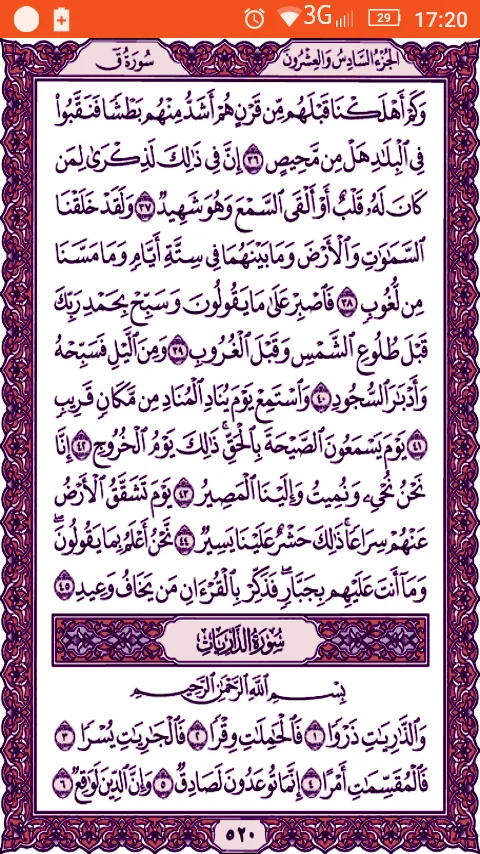 3G 29 17:20
الجزء السادس والعشرون سورة ق
وَكَمْ أَهْلَكْنَا قَبْلَهُم مِّن قَرْنٍ هُمْ أَشَدُّ مِنْهُم بَطْشًا فَنَقَّبُوا۟
فِى ٱلْبِلَٰدِ هَلْ مِن مَّحِيصٍ ٣٦ إِنَّ فِى ذَٰلِكَ لَذِكْرَىٰ لِمَن
كَانَ لَهُۥ قَلْبٌ أَوْ أَلْقَى ٱلسَّمْعَ وَهُوَ شَهِيدٌ ٣٧ وَلَقَدْ خَلَقْنَا
ٱلسَّمَٰوَٰتِ وَٱلْأَرْضَ وَمَا بَيْنَهُمَا فِى سِتَّةِ أَيَّامٍ وَمَا مَسَّنَا
مِن لُّغُوبٍ ٣٨ فَٱصْبِرْ عَلَىٰ مَا يَقُولُونَ وَسَبِّحْ بِحَمْدِ رَبِّكَ
قَبْلَ طُلُوعِ ٱلشَّمْسِ وَقَبْلَ ٱلْغُرُوبِ ٣٩ وَمِنَ ٱلَّيْلِ فَسَبِّحْهُ
وَأَدْبَٰرَ ٱلسُّجُودِ ٤٠ وَٱسْتَمِعْ يَوْمَ يُنَادِ ٱلْمُنَادِ مِن مَّكَانٍ قَرِيبٍ
٤١ يَوْمَ يَسْمَعُونَ ٱلصَّيْحَةَ بِٱلْحَقِّ ۚ ذَٰلِكَ يَوْمُ ٱلْخُرُوجِ ٤٢ إِنَّا
نَحْنُ نُحْىِۦ وَنُمِيتُ وَإِلَيْنَا ٱلْمَصِيرُ ٤٣ يَوْمَ تَشَقَّقُ ٱلْأَرْضُ
عَنْهُمْ سِرَاعًا ۚ ذَٰلِكَ حَشْرٌ عَلَيْنَا يَسِيرٌ ٤٤ نَّحْنُ أَعْلَمُ بِمَا يَقُولُونَ ۖ
وَمَآ أَنتَ عَلَيْهِم بِجَبَّارٍ ۖ فَذَكِّرْ بِٱلْقُرْءَانِ مَن يَخَافُ وَعِيدِ ٤٥
سورة الذاريات
بِسْمِ ٱللَّهِ ٱلرَّحْمَٰنِ ٱلرَّحِيمِ
وَٱلذَّٰرِيَٰتِ ذَرْوًا ١ فَٱلْحَٰمِلَٰتِ وِقْرًا ٢ فَٱلْجَٰرِيَٰتِ يُسْرًا ٣
فَٱلْمُقَسِّمَٰتِ أَمْرًا ٤ إِنَّمَا تُوعَدُونَ لَصَادِقٌ ٥ وَإِنَّ ٱلدِّينَ لَوَٰقِعٌ ٦
٥٢٠